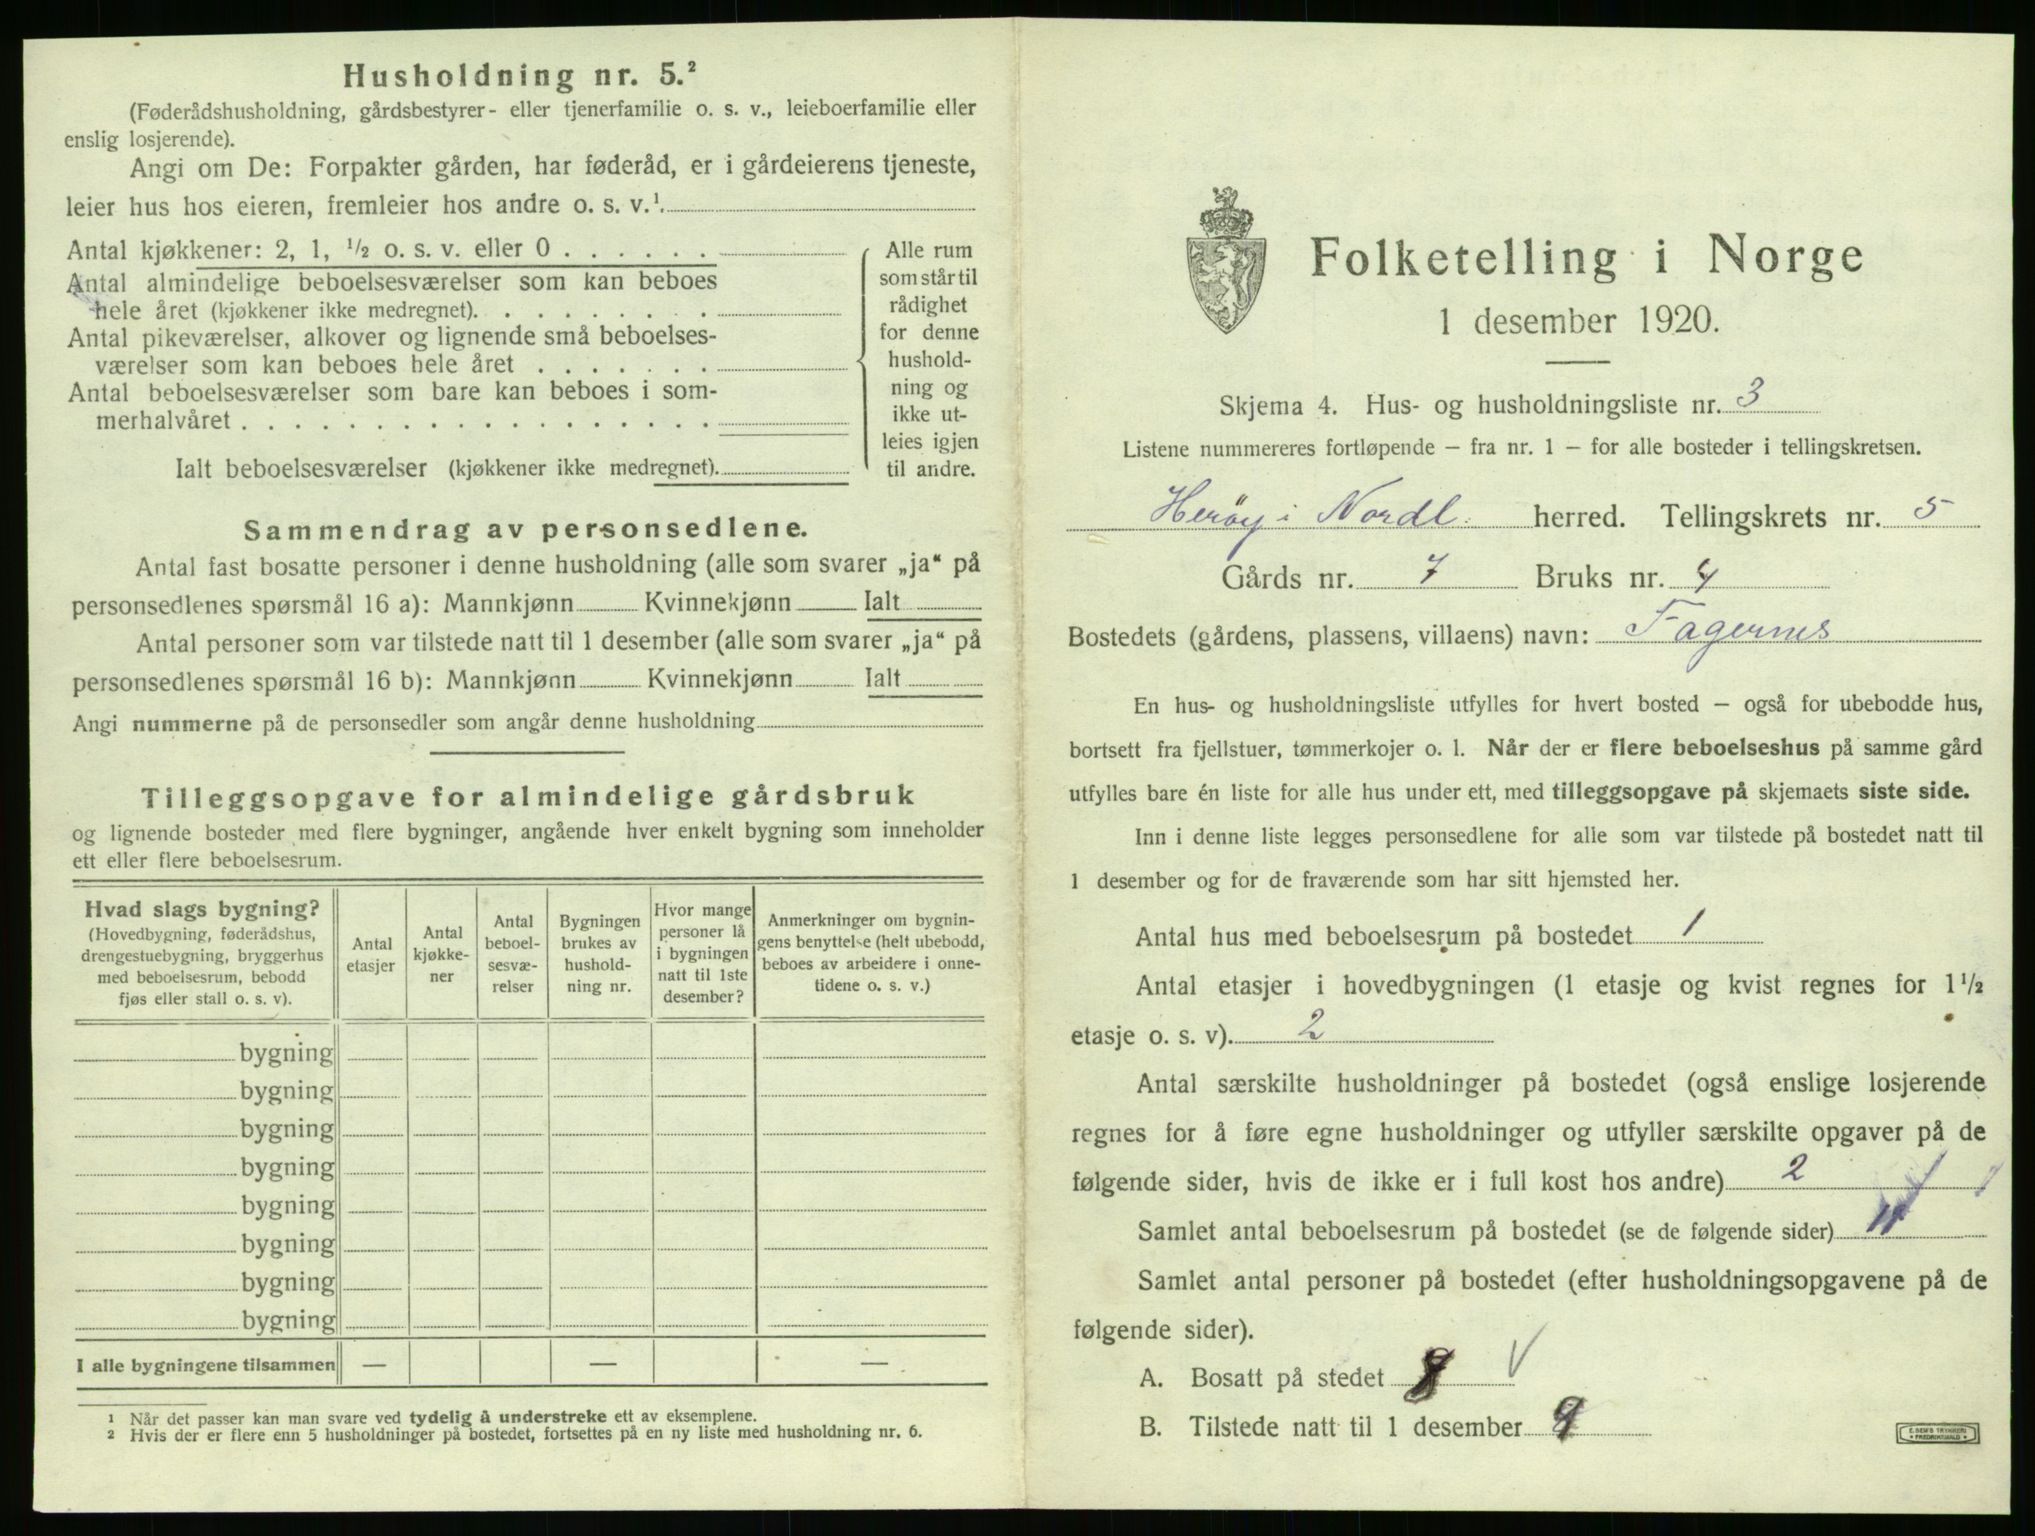 Husholdning nr. 5.²
(Føderådshusholdning, gårdsbestyrer- eller tjenerfamilie o. s. v., leieboerfamilie eller
enslig losjerende).
Angi om De: Forpakter gården, har føderåd, er i gårdeierens tjeneste,
leier hus hos eieren, fremleier hos andre o. s. v.¹.
Antal kjøkkener: 2, 1, ½ o. s. v. eller 0 . . . . . .
Antal almindelige beboelsesværelser som kan beboes
hele året (kjøkkener ikke medregnet). . . . . . . . .
Antal pikeværelser, alkover og lignende små beboelses-
værelser som kan beboes hele året . . . . . . .
Antal beboelsesværelser som bare kan beboes i som-
merhalvåret . . . . . . . . . . . . . . . . . .
Ialt beboelsesværelser (kjøkkener ikke medregnet).
Alle rum
som står til
rådighet
for denne
hushold-
ning og
ikke ut-
leies igjen
til andre.
Sammendrag av personsedlene.
Antal fast bosatte personer i denne husholdning (alle som svarer „ja“ på
personsedlenes spørsmål 16 a): Mannkjønn Kvinnekjønn Ialt
Antal personer som var tilstede natt til 1 desember (alle som svarer „ja“ på
personsedlenes spørsmål 16 b): Mannkjønn Kvinnekjønn Ialt
Angi nummerne på de personsedler som angår denne husholdning
Tilleggsopgave for almindelige gårdsbruk
og lignende bosteder med flere bygninger, angående hver enkelt bygning som inneholder
ett eller flere beboelsesrum.
Hvad slags bygning?
(Hovedbygning, føderådshus,
drengestuebygning, bryggerhus
med beboelsesrum, bebodd
fjøs eller stall o. s. v).
Antal
etasjer
Antal
kjøkke-
ner
Antal
beboel-
sesvæ-
relser
Bygningen
brukes av
hushold-
ning nr.
Hvor mange
personer lå
i bygningen
natt til 1ste
desember?
Anmerkninger om bygnin-
gens benyttelse (helt ubebodd,
beboes av arbeidere i onne-
tidene o. s. v.)
bygning
bygning
bygning
bygning
bygning
bygning
bygning
bygning
I alle bygningene tilsammen — — —
¹ Når det passer kan man svare ved tydelig å understreke ett av eksemplene.
² Hvis der er flere enn 5 husholdninger på bostedet, fortsettes på en ny liste med husholdning nr. 6.
Folketelling i Norge
1 desember 1920.
Skjema 4. Hus- og husholdningsliste nr. 3
Listene nummereres fortløpende – fra nr. 1 – for alle bosteder i tellingskretsen.
Herøy i Nordl. herred. Tellingskrets nr. 5
Gårds nr. 7 Bruks nr. 4
Bostedets (gårdens, plassens, villaens) navn: Fagernes
En hus- og husholdningsliste utfylles for hvert bosted – også for ubebodde hus,
bortsett fra fjellstuer, tømmerkojer o. l. Når der er flere beboelseshus på samme gård
utfylles bare én liste for alle hus under ett, med tilleggsopgave på skjemaets siste side.
Inn i denne liste legges personsedlene for alle som var tilstede på bostedet natt til
1 desember og for de fraværende som har sitt hjemsted her.
Antal hus med beboelsesrum på bostedet 1
Antal etasjer i hovedbygningen (1 etasje og kvist regnes for 1½
etasje o. s. v). 2
Antal særskilte husholdninger på bostedet (også enslige losjerende
regnes for å føre egne husholdninger og utfyller særskilte opgaver på de
følgende sider, hvis de ikke er i full kost hos andre) 2
Samlet antal beboelsesrum på bostedet (se de følgende sider)
Samlet antal personer på bostedet (efter husholdningsopgavene på de
følgende sider).
A. Bosatt på stedet
B. Tilstede natt til 1 desember 9
E. SEM'S TRYKKERI
FREDRIKSHALD